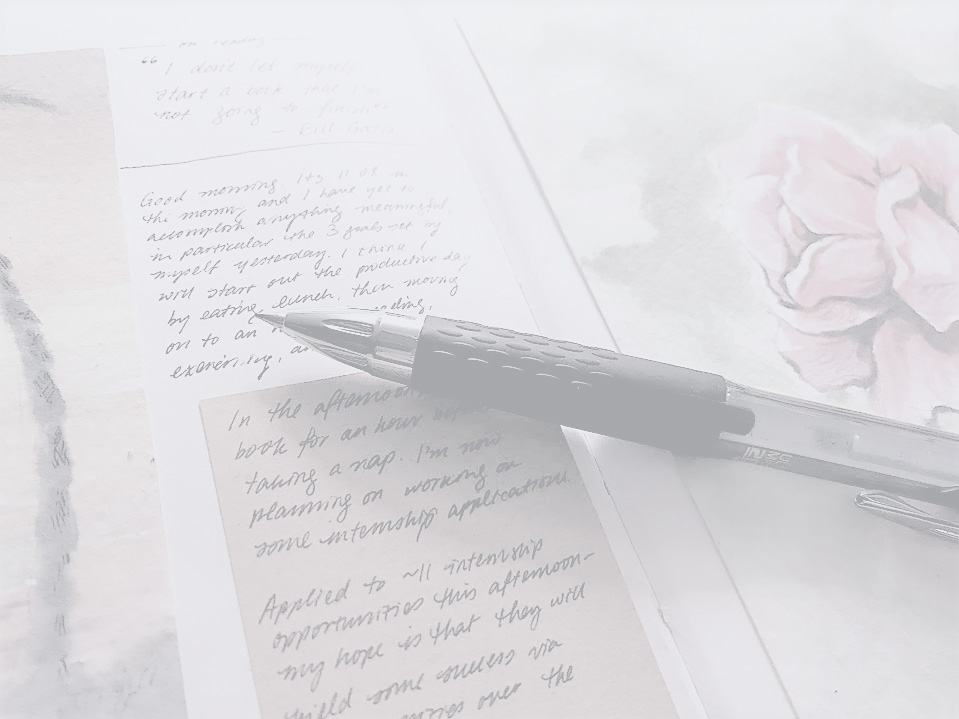 on reading
"I don't let myself
start a book that I'm
not going to finish"
— Bill Gates
Good morning. It's 11:08 in
the morning and I have yet to
accomplish anything meaningful,
in particular the 3 goals set by
myself yesterday. I think I
will start out the productive day
by eating lunch, then moving
on to an reading,
exercising,
In the afternoon
book for an hour before
taking a nap. I'm now
planning on working on
some internship applications.
Applied to ~11 internship
opportunities this afternoon–
my hope is that they will
yield some success via
over the